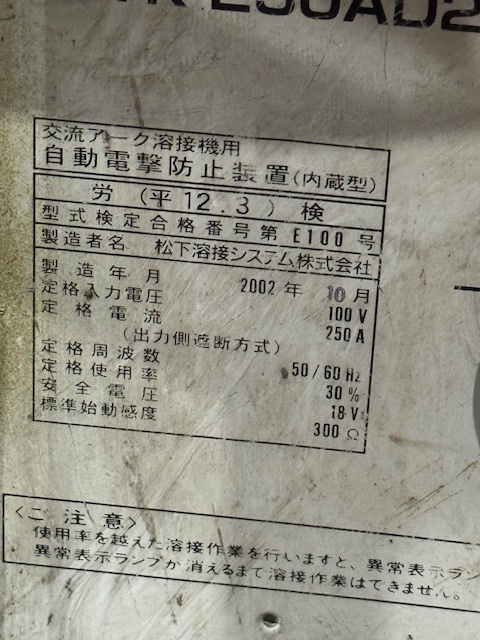 250AD2
交流アーク溶接機用
自動電撃防止装置(内蔵型)
労(平12.3)検
型式検定合格番号第E100号
製造者名 松下溶接システム株式会社
製造年月 2002年 10月
定格入力電圧 100V
定格電流 250A
(出力側遮断方式)
定格周波数 50/60Hz
定格使用率 30%
安全電圧 18V
標準始動感度 300Ω
〈ご注意〉
使用率を越えた溶接作業を行いますと、異常表示ラン
異常表示ランプが消えるまで溶接作業はできません。